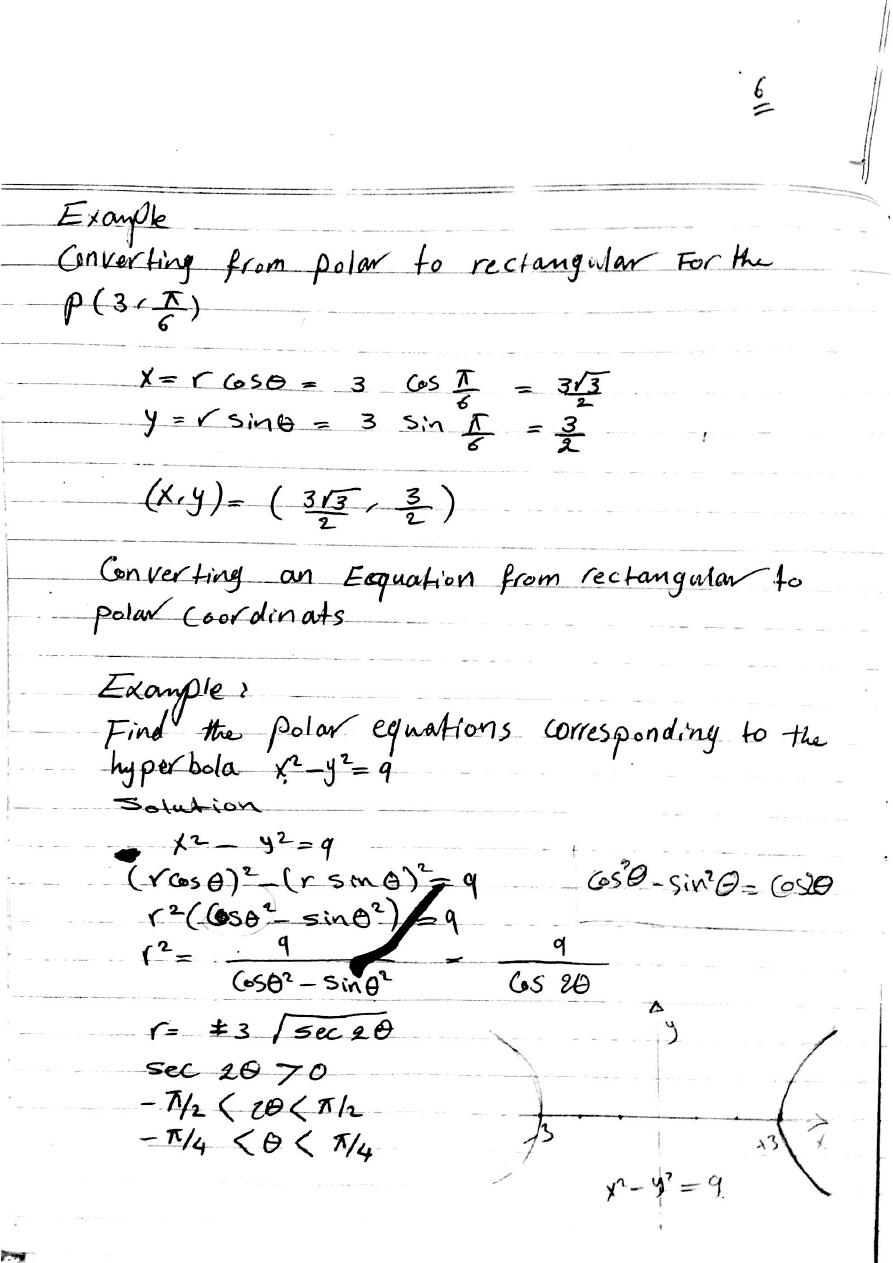 6
Example
Converting from polar to rectangular For the
P(3, π/6)
x = r cosθ = 3 cos π/6 = 3√3/2
y = r sinθ = 3 sin π/6 = 3/2
(x,y) = (3√3/2, 3/2)
Converting an Eequation from rectangular to
polar Coordinats
Example:
Find the polar equations corresponding to the
hyperbola x² - y² = 9
Solution
x² - y² = 9
(r cos θ)² - (r sin θ)² = 9
cos²θ - sin²θ = cos2θ
r²(Cosθ² - sinθ²) = 9
r² = 9/(Cosθ² - sinθ²) = 9/(Cos 2θ)
r = ±3 √sec 2θ
sec 2θ > 0
-π/2 < 2θ < π/2
-π/4 < θ < π/4
y
-3
+3
x
x² - y² = 9